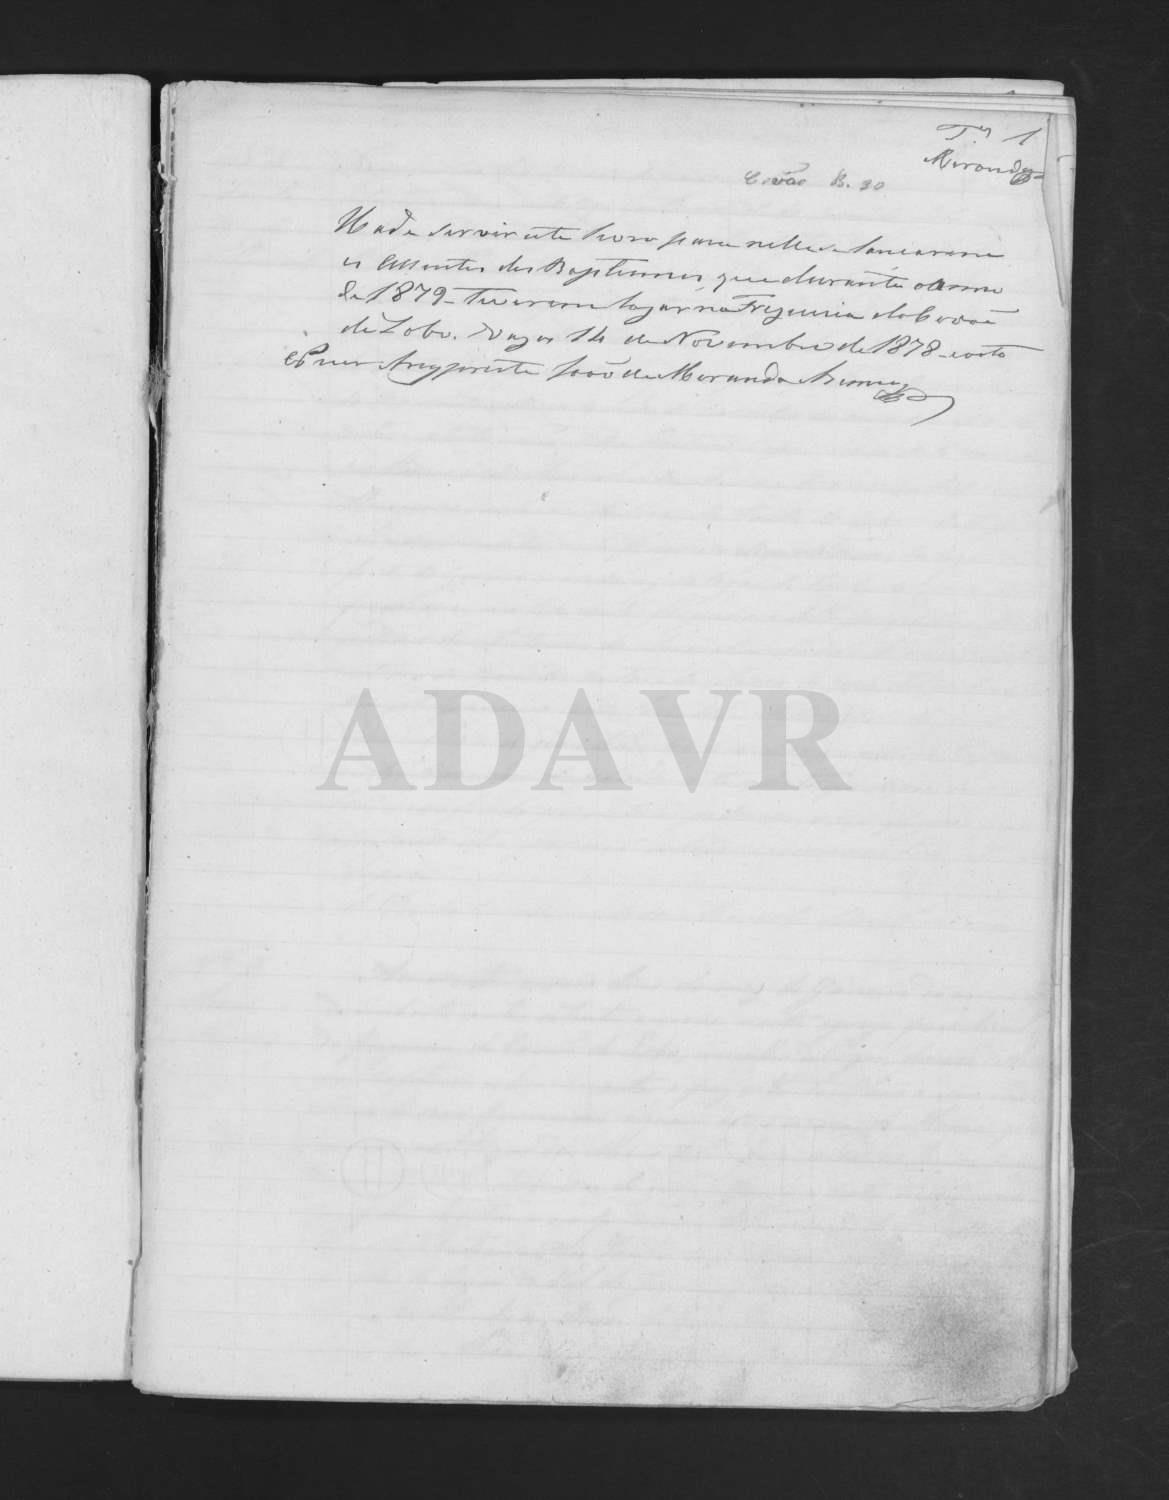 T.º 1
Miranda
Covão B. 30
Hade servir este livro para nelle se lancarem
os Assentos dos Baptismos, que durante o anno
de 1879 - Tiverem lugar na Freguesia do Covão
do Lobo. Vagos 14 de Novembro de 1878 - oito
O Arcypreste João de Miranda
ADAVR